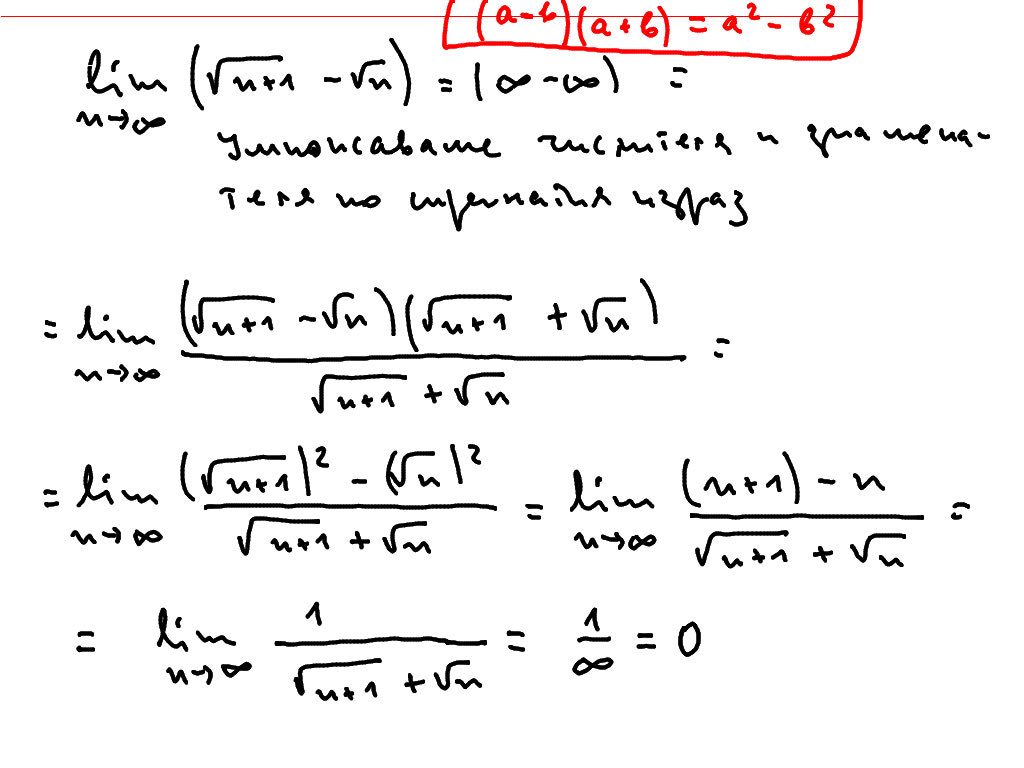 (a-b)(a+b) = a² - b²
lim n→∞ (√(n+1) - √n) = (∞-∞) =
Умножаваме числителя и знамена-
теля по спрегнатия израз
= lim n→∞ ((√(n+1) - √n)(√(n+1) + √n)) / (√(n+1) + √n) =
= lim n→∞ ((√(n+1))² - (√n)²) / (√(n+1) + √n) = lim n→∞ ((n+1) - n) / (√(n+1) + √n) =
= lim n→∞ 1 / (√(n+1) + √n) = 1/∞ = 0